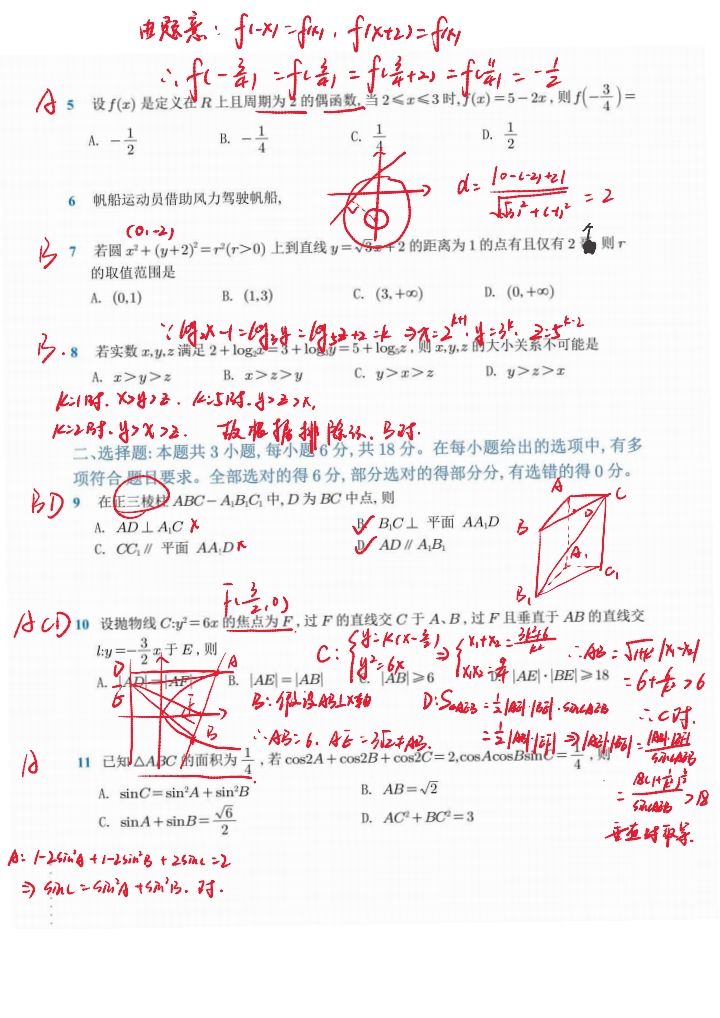 由题意: f(-x)=f(x), f(x+2)=f(x)
∴ f(-3/4) = f(3/4) = f(3/4+2) = f(11/4) = -1/2
A 5 设 f(x) 是定义在 R 上且周期为 2 的偶函数, 当 2≤x≤3 时, f(x)=5-2x, 则 f(-3/4)=
A. -1/2 B. -1/4 C. 1/4 D. 1/2
6 帆船运动员借助风力驾驶帆船,
d=|0-(-2)+2|/√((√3)²+(-1)²) = 2
(0,-2)
B 7 若圆 x²+(y+2)²=r²(r>0) 上到直线 y=√3x+2 的距离为 1 的点有且仅有 2 个, 则 r
的取值范围是
A. (0,1) B. (1,3) C. (3,+∞) D. (0,+∞)
∵ log₂x-1=log₃y=log₅z+2=k ⇒x=2^(k+1), y=3^k, z=5^(k-2)
B. 8 若实数 x,y,z 满足 2+log₂x=3+log₃y=5+log₅z, 则 x,y,z 的大小关系不可能是
A. x>y>z B. x>z>y C. y>x>z D. y>z>x
k=1时, x>y>z. k=5时, y>z>x,
k=2时, y>x>z. 故根据排除法, B对.
二、选择题: 本题共 3 小题, 每小题 6 分, 共 18 分。在每小题给出的选项中, 有多
项符合题目要求。全部选对的得 6 分, 部分选对的得部分分, 有选错的得 0 分。
BD 9 在正三棱柱 ABC-A₁B₁C₁ 中, D 为 BC 中点, 则
A. AD⊥A₁C × B. B₁C⊥ 平面 AA₁D
C. CC₁∥ 平面 AA₁D × D. AD∥A₁B₁
A C B D A₁ C₁ B₁
F(3/2,0)
ACD 10 设抛物线 C:y²=6x 的焦点为 F, 过 F 的直线交 C 于 A、B, 过 F 且垂直于 AB 的直线交
l:y=-3/2 x 于 E, 则
A. |AD|=|AF| B. |AE|=|AB| C. |AB|≥6 D. |AE|·|BE|≥18
D E A F B
C: {y=k(x-3/2) y²=6x ⇒ {x₁+x₂=(3k²+6)/k² x₁x₂=9/4
∴AB=√(1+k²)|x₁-x₂|
=6+6/k²>6
∴C对.
B: 假设AB⊥x轴
∴AB=6, AE=3√2≠AB.
D: S△AEB=1/2|AE|·|BE|·sin∠AEB
=1/2|AB|·|EF| ⇒|AE|·|BE|=|AB|·|EF|/sin∠AEB
= 18(1+1/k²)^(3/2)/sin∠AEB >18
垂直时取等.
A 11 已知 △ABC 的面积为 1/4, 若 cos2A+cos2B+cos2C=2,cosAcosBsinC=1/4, 则
A. sinC=sin²A+sin²B B. AB=√2
C. sinA+sinB=√6/2 D. AC²+BC²=3
A: 1-2sin²A+1-2sin²B+2sinC=2
⇒ sinC=sin²A+sin²B. 对.